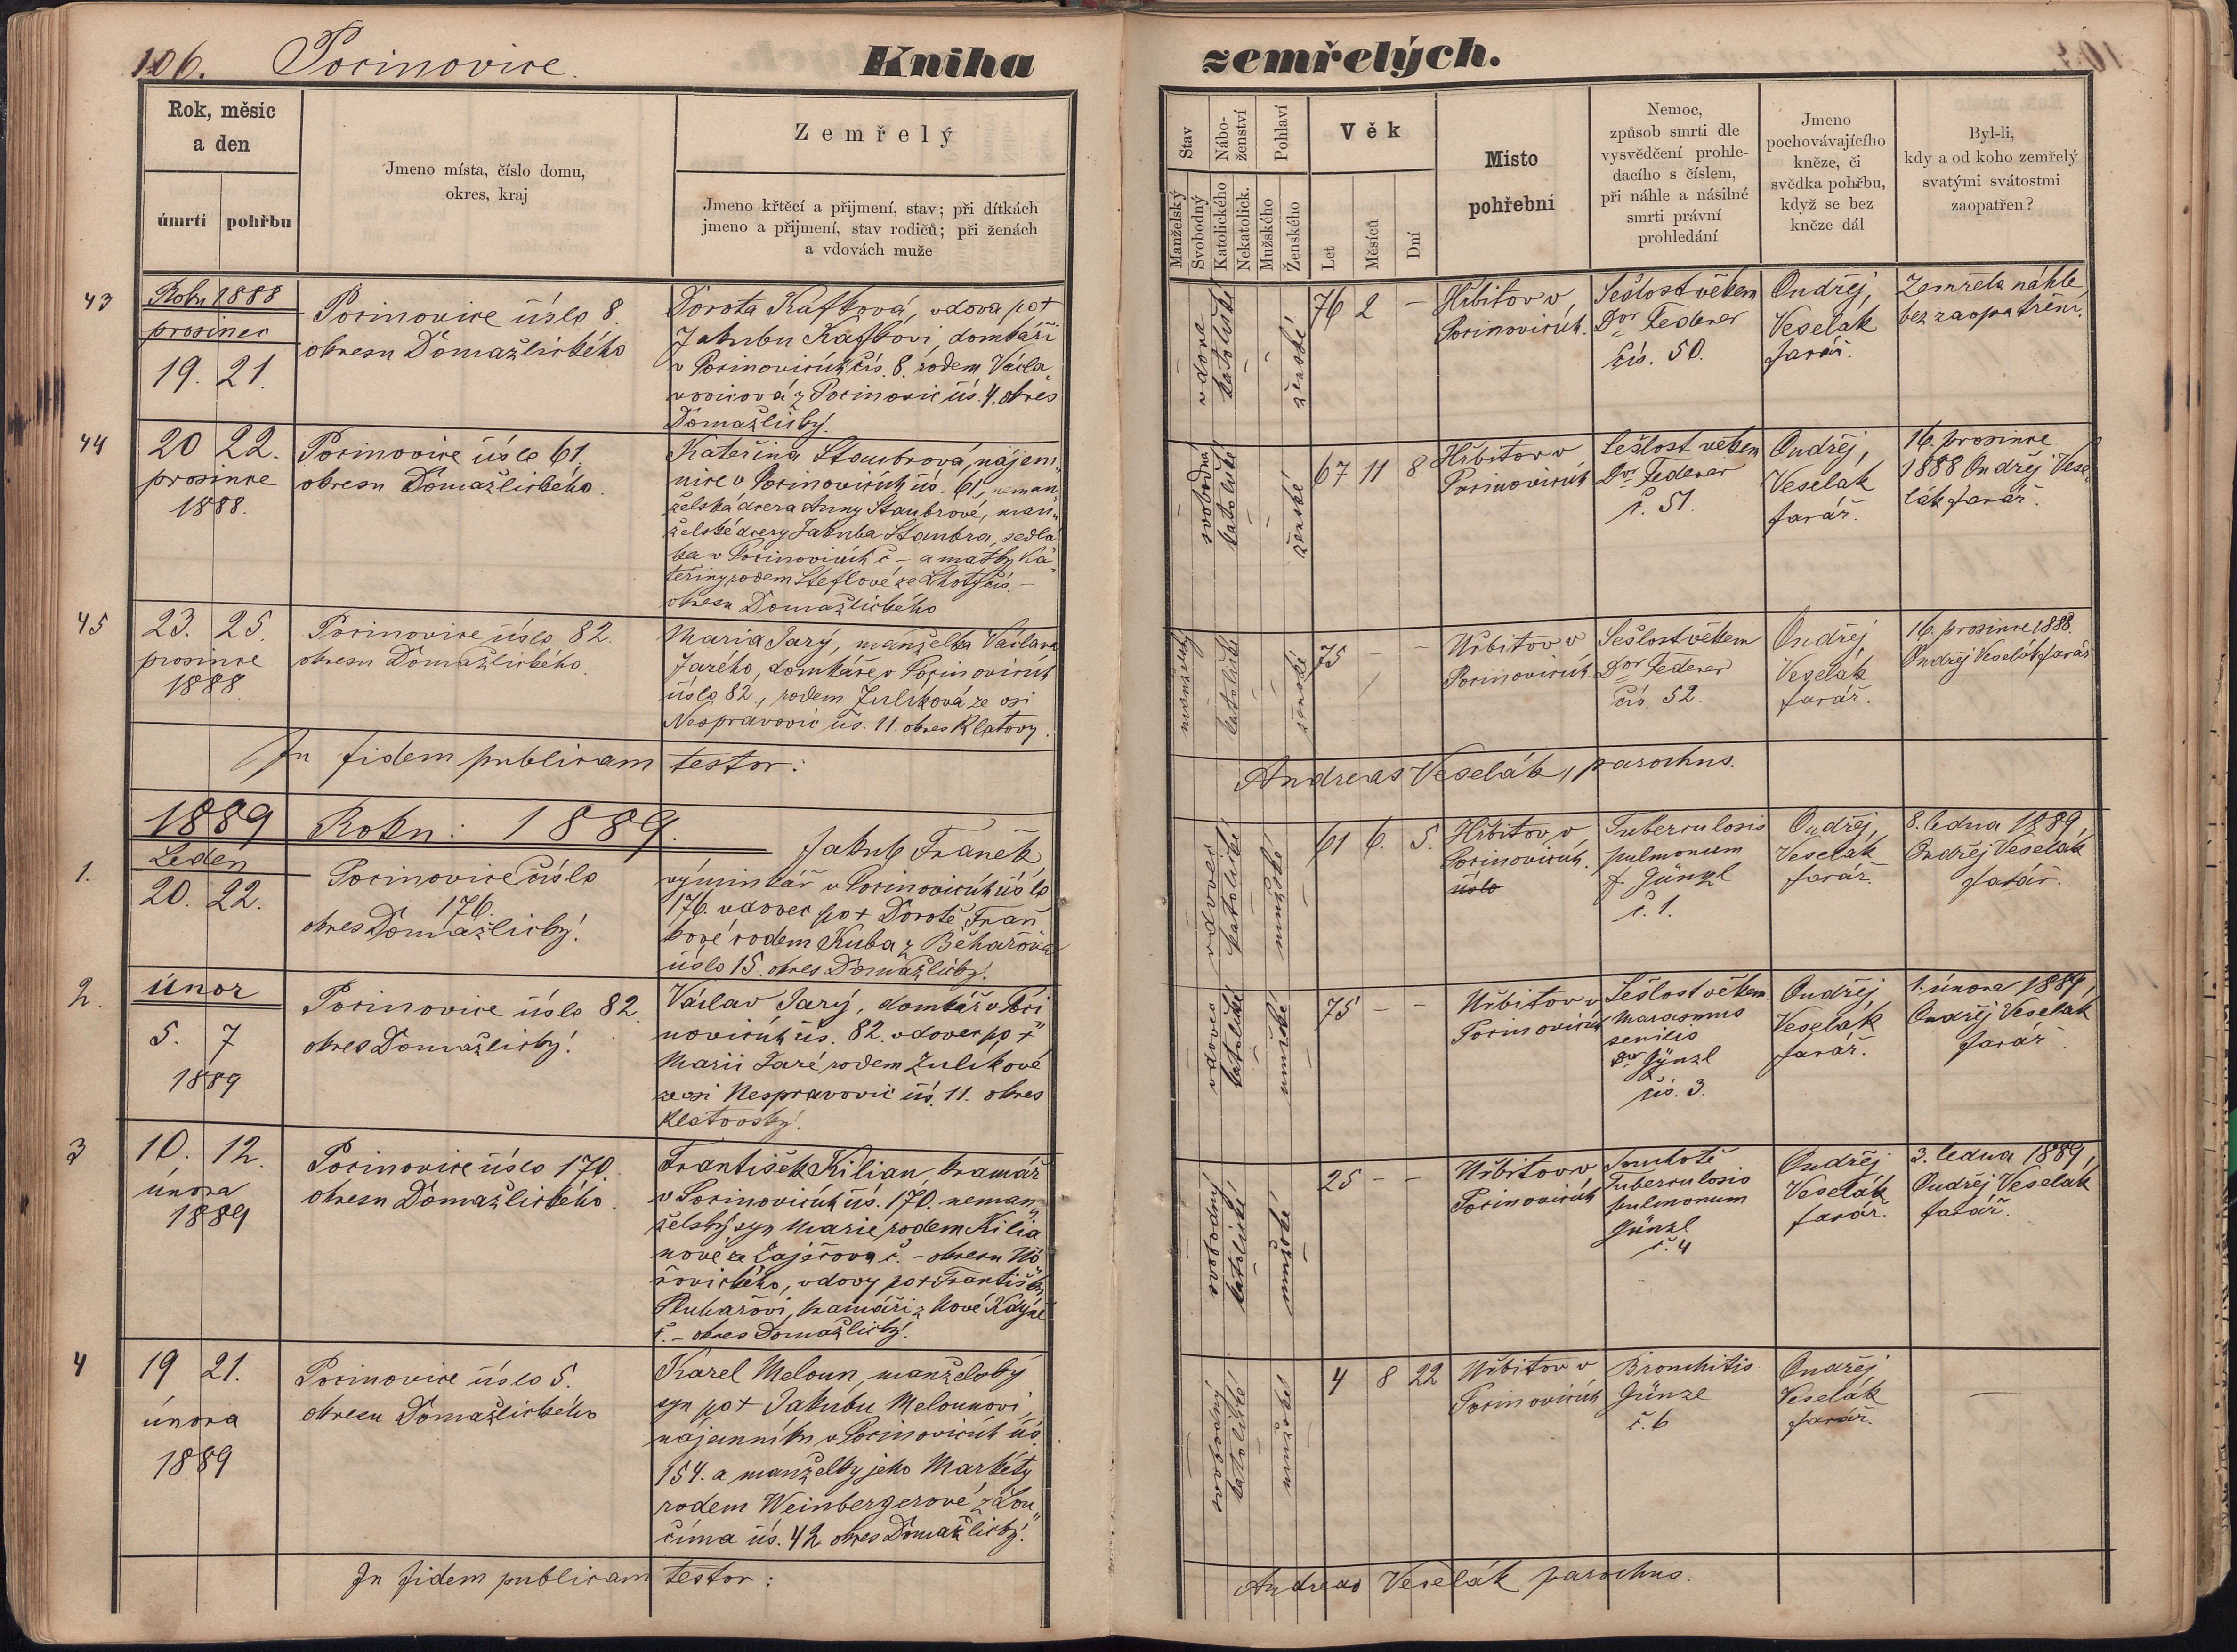 106. Pocinovice. Kniha zemřelých.
Rok, měsíc
a den
úmrtí pohřbu
Jmeno místa, číslo domu,
okres, kraj
Zemřelý
Jmeno křtěcí a přijmení, stav; při dítkách
jmeno a přijmení, stav rodičů; při ženách
a vdovách muže
Stav
Nábo-
ženství
Pohlaví
Věk
Manželský
Svobodný
Katolického
Nekatolick.
Mužského
Ženského
Let
Měsíců
Dní
Místo
pohřební
Nemoc,
způsob smrti dle
vysvědčení prohle-
dacího s číslem,
při náhle a násilné
smrti právní
prohledání
Jmeno
pochovávajícího
kněze, či
svědka pohřbu,
když se bez
kněze dál
Byl-li,
kdy a od koho zemřelý
svatými svátostmi
zaopatřen?
43
Roku 1888
prosinec
19. 21.
Pocinovice číslo 8.
okresu Domažlického
Dorota Kafková, vdova po +
Jakubu Kafkovi, domkáři
v Pocinovicích čís. 8. rodem Václa„
vovicová z Pocinovic čís. 4. okres
Domažlický.
vdova
katolické
ženské
76 2 –
Hřbitov v
Pocinovicích.
Sešlost věkem
Dor Federer
čís. 50.
Ondřej
Veselák
farář.
Zemřela náhle
bez zaopatření.
44
20 22.
prosince
1888.
Pocinovice číslo 61,
okresu Domažlického.
Kateřina Staubrová, nájem„
nice v Pocinovicích čís. 61, neman„
želská dcera Anny Staubrové, man„
želské dcery Jakuba Staubra, sedlá
ka v Pocinovicích č – a matky Ka„
teřiny rodem Steflové ze Lhoty čís. –
okresu Domažlického
svobodná
katolické
ženské
67 11 8
Hřbitov v
Pocinovicích
Sešlost věkem
Dor Federer
č. 51.
Ondřej,
Veselák
farář.
16. prosince
1888 Ondřej Vese„
lák farář.
45
23. 25.
prosince
1888
Pocinovice číslo 82.
okresu Domažlického
Maria Jarý, manželka Václava
Jarého, domkáře v Pocinovicích
číslo 82., rodem Zulíková ze vsi
Nespravovic čís. 11. okres Klatovy.
manželský
katolické
ženské
75 – –
Hřbitov v
Pocinovicích.
Sešlost věkem
Dor Federer
čís. 52.
Ondřej
Veselák
farář.
16. prosince 1888.
Ondřej Veselák farář
In fidem publicam testor:
Andreas Veselák, parochus.
1889 Roku: 1889.
1.
Leden
20. 22.
Pocinovice číslo
176.
okres Domažlický.
Jakub Franěk,
výminkář v Pocinovicích číslo
176. vdovec po + Dorotě Fraň
kové rodem Kuba z Běhařova
číslo 15. okres Domažlický.
vdovec
katolické
mužské
61 6. 5.
Hřbitov v
Pocinovicích.
číslo
Tuberculosis
pulmonum
Günzl
č. 1.
Ondřej
Veselák
farář.
8. ledna 1889,
Ondřej Veselák
farář.
2.
únor
5. 7
1889
Pocinovice číslo 82.
okres Domažlický.
Václav Jarý, domkář v Poci„
novicích čís. 82. vdovec po +
Marii Jaré rodem Zulíkové
ze vsi Nespravovic čís. 11. okres
Klatovský.
vdovec
katolické
mužské
75 – –
Hřbitov v
Pocinovicích
Sešlost věkem
Marasmus
senilis
Dor Günzl
čís. 3.
Ondřej
Veselák
farář.
1. února 1889,
Ondřej Veselák
farář
3
10. 12.
února
1889
Pocinovice číslo 170.
okresu Domažlického.
František Kilian, kramář
v Pocinovicích čís. 170. neman„
želský syn Marie rodem Kilia
nové ze Zaječova č. – okresu Ho
řovického, vdovy po + Františku
Pluhařovi, kramáři z Nové Kdyně
č. – okres Domažlický.
svobodný
katolické
mužské
25 – –
Hřbitov v
Pocinovicích
Souchotě
Tuberculosis
pulmonum
Günzl
č. 4
Ondřej
Veselák
farář.
3. ledna 1889,
Ondřej Veselák
farář.
4
19 21.
února
1889
Pocinovice číslo 5.
okresu Domažlického
Karel Meloun, manželský
syn po + Jakubu Melounovi,
nájemníku v Pocinovicích čís
154. a manželky jeho Markéty
rodem Weinbergerové z Lou„
číma čís. 42 okres Domažlický.
svobodný
katolické
mužské
4 8 22
Hřbitov v
Pocinovicích
Bronchitis
Günzl
č. 6
Ondřej
Veselák
farář.
–
In fidem publicam testor:
Andreas Veselák parochus.